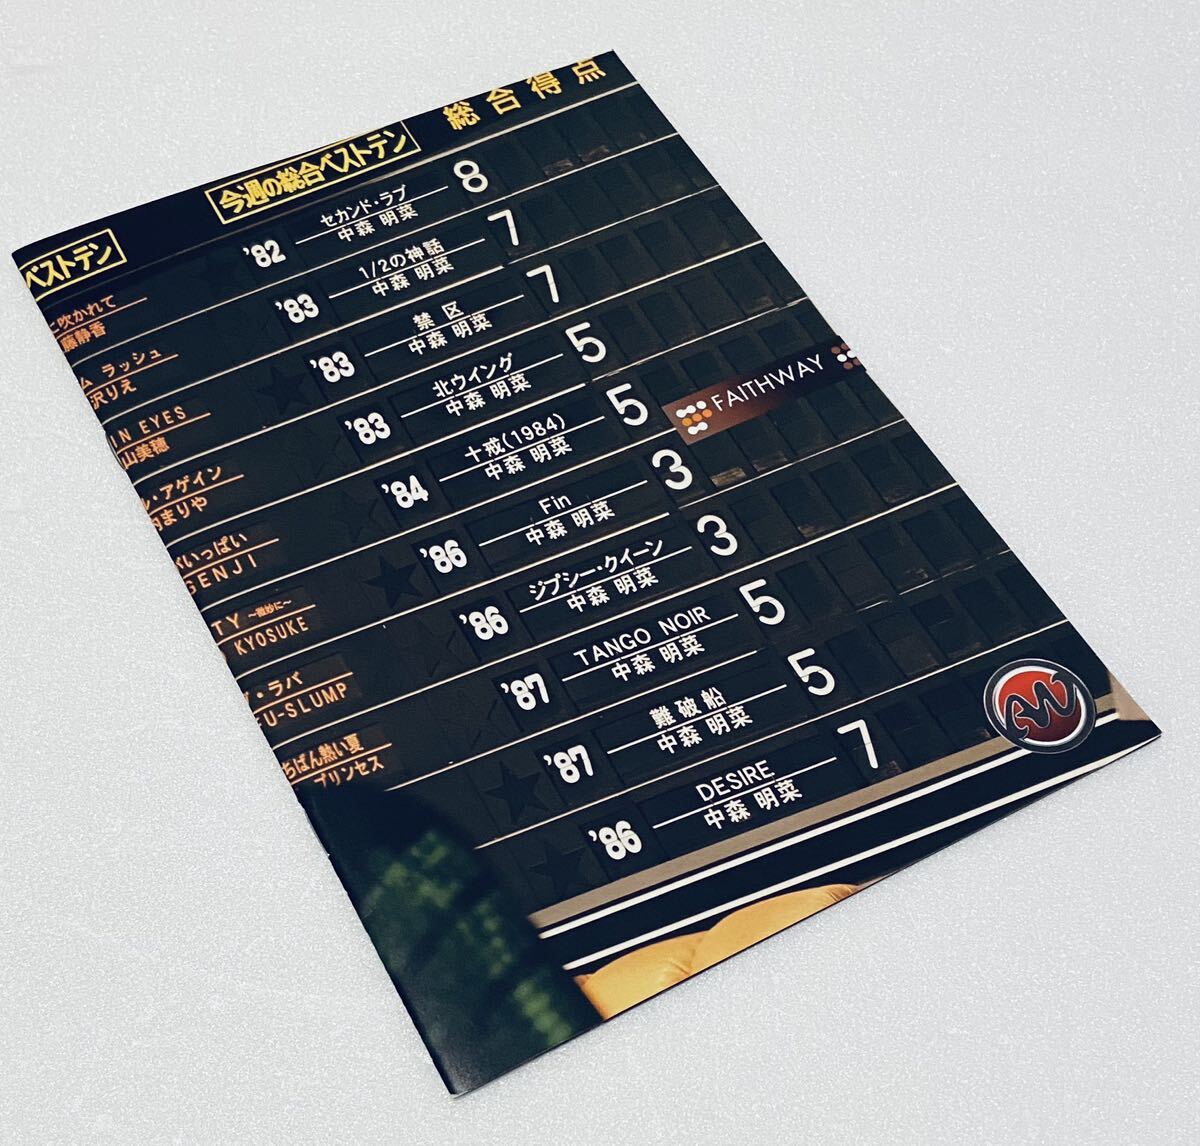 ベストテン
今週の総合ベストテン
総合得点
に吹かれて
藤静香
ム ラッシュ
沢りえ
IN EYES
山美穂
ル・アゲイン
内まりや
いっぱい
GENJI
TY ～微妙に～
KYOSUKE
・ラバ
FU-SLUMP
ちばん熱い夏
プリンセス
'82
セカンド・ラブ
中森 明菜
8
'83
1/2の神話
中森 明菜
7
'83
禁区
中森 明菜
7
'83
北ウイング
中森 明菜
5
'84
十戒(1984)
中森 明菜
5
'86
Fin
中森 明菜
3
'86
ジプシー・クイーン
中森 明菜
3
'87
TANGO NOIR
中森 明菜
5
'87
難破船
中森 明菜
5
'86
DESIRE
中森 明菜
7
FAITHWAY